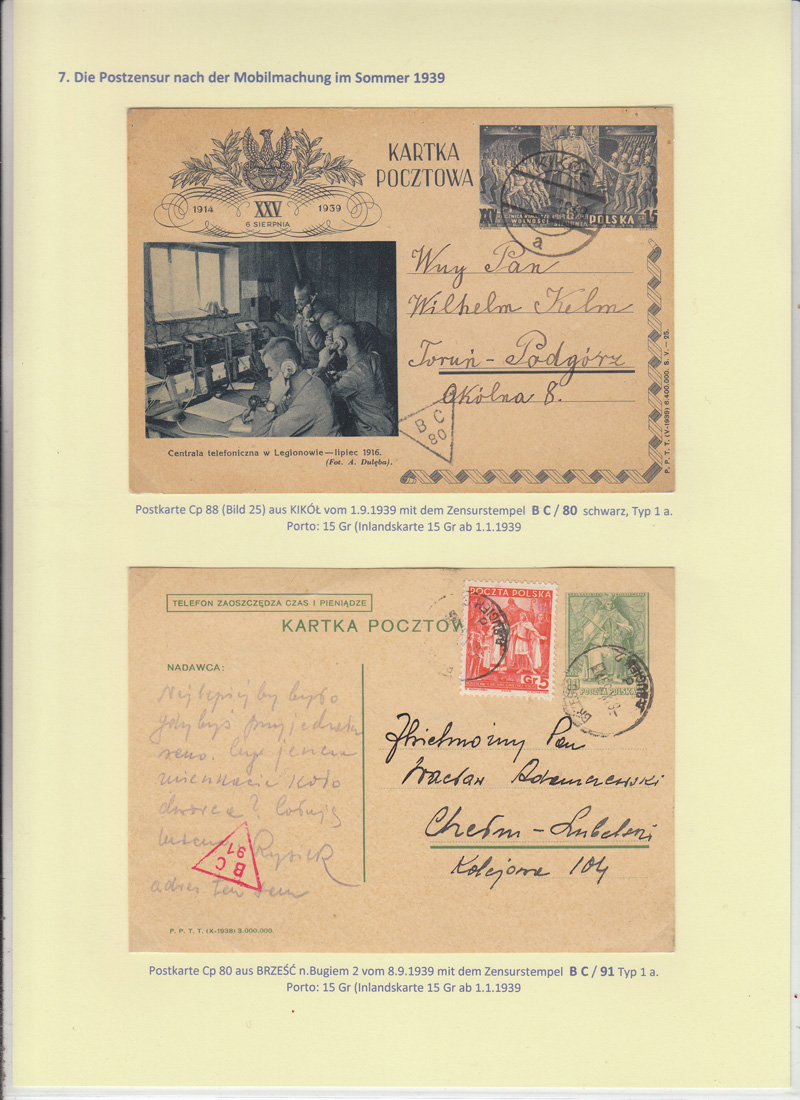 7. Die Postzensur nach der Mobilmachung im Sommer 1939
KARTKA
POCZTOWA
1914 XXV 1939
6 SIERPNIA
KIKÓŁ
a
POLSKA 15
Wny Pan
Wilhelm Kelm
Toruń-Podgórz
Okólna 8.
B C
80
Centrala telefoniczna w Legionowie—lipiec 1916.
(Fot. A. Dulęba).
P. P. T. T. (V-1939) 6.400.000. S. V.— 25.
Postkarte Cp 88 (Bild 25) aus KIKÓŁ vom 1.9.1939 mit dem Zensurstempel B C / 80 schwarz, Typ 1 a.
Porto: 15 Gr (Inlandskarte 15 Gr ab 1.1.1939
TELEFON ZAOSZCZĘDZA CZAS I PIENIĄDZE
KARTKA POCZTOW
POCZTA POLSKA
Gr 5
POCZTA POLSKA
NADAWCA:
Najlepiej by było
gdybyś przyjechała
mieszkacie koło
dworca? Całuję
Rysiek
adres ten sam
B C
91
Wacław
Chełm-Lubelski
Kolejowa 104
P. P. T. T. (X-1938) 3.000.000.
Postkarte Cp 80 aus BRZEŚĆ n.Bugiem 2 vom 8.9.1939 mit dem Zensurstempel B C / 91 Typ 1 a.
Porto: 15 Gr (Inlandskarte 15 Gr ab 1.1.1939